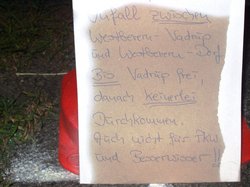 Unfall zwischen
Westbevern-Vadrup
und Westbevern-Dorf
Bis Vadrup frei,
danach keinerlei
Durchkommen.
Auch nicht für Pkw
und Besserwisser!!